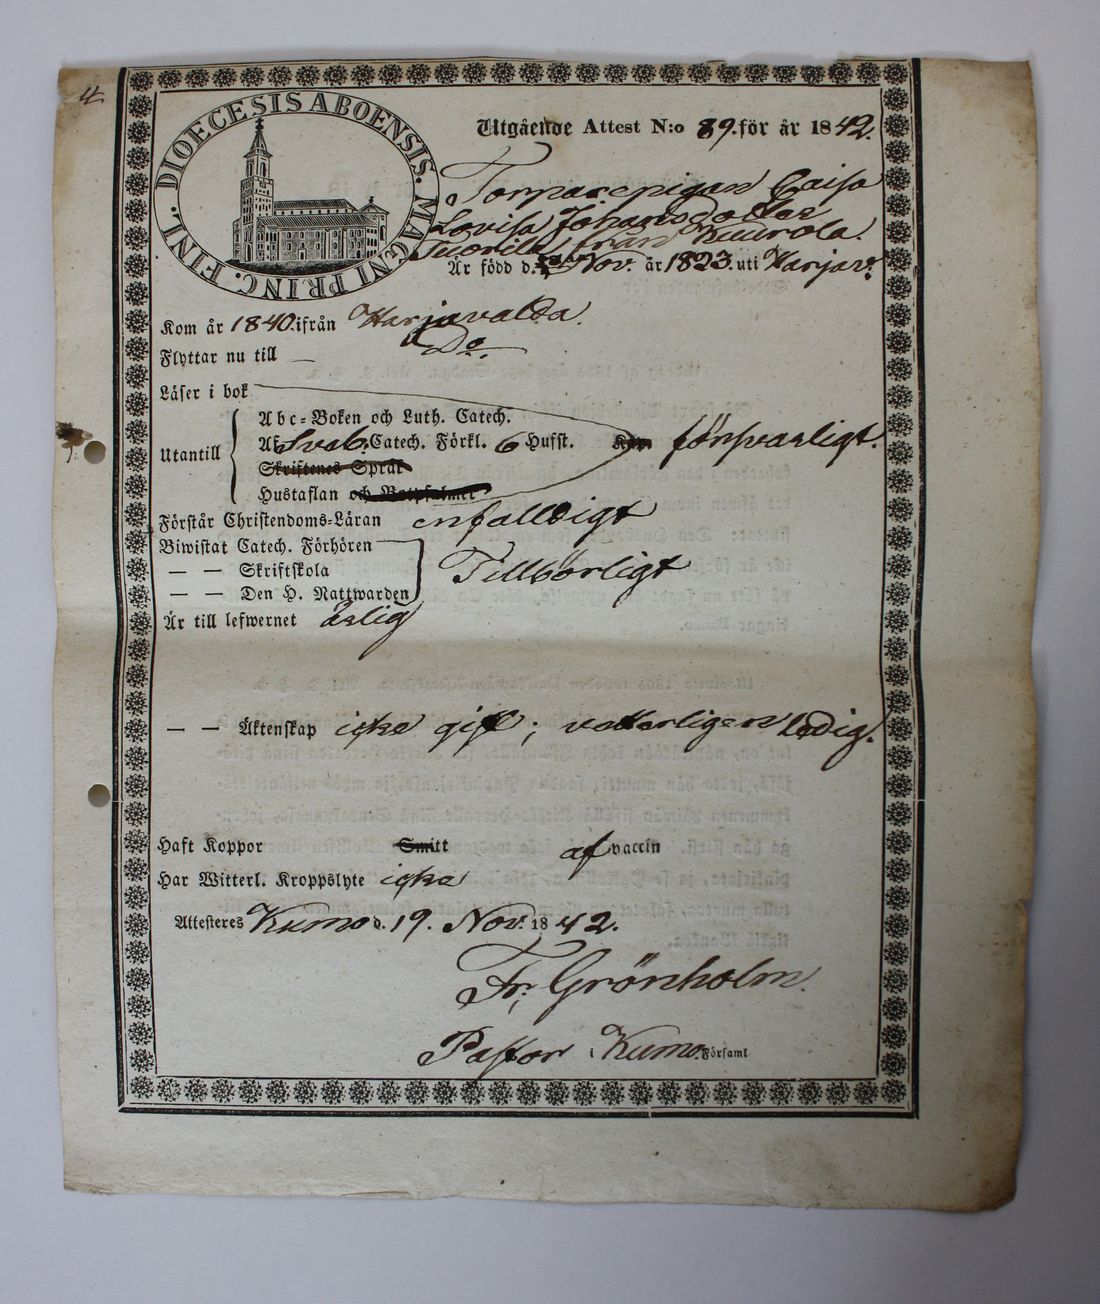 4.
DIOECESIS ABOENSIS. MAGNI PRINC. FINL.
Utgående Attest N:o 89. för år 1842.
Torparepigan Caisa
Lovisa Johansdotter
från Kuurola.
Är född d. Nov. år 1823. uti Harjav:
Kom år 1840. ifrån Harjavalda.
Flyttar nu till — Do.
Läser i bok
Abc-Boken och Luth. Catech.
Utantill Af Sveb. Catech. Förkl. 6 Hufst. försvarligt.
Skriftenes Språk
Hustaflan och Botpsalmer
Förstår Christendoms-Läran enfalldigt
Biwistat Catech. Förhören
— — Skriftskola Tillbörligt
— — Den H. Nattwarden
Är till lefwernet ärlig
— — Äktenskap icke gift; vetterligen ledig.
Haft Koppor Smitt af vaccin
Har Witterl. Kroppslyte icke
Attesteres Kumo d. 19. Nov. 1842.
Fr. Grönholm.
Pastor i Kumo Församl